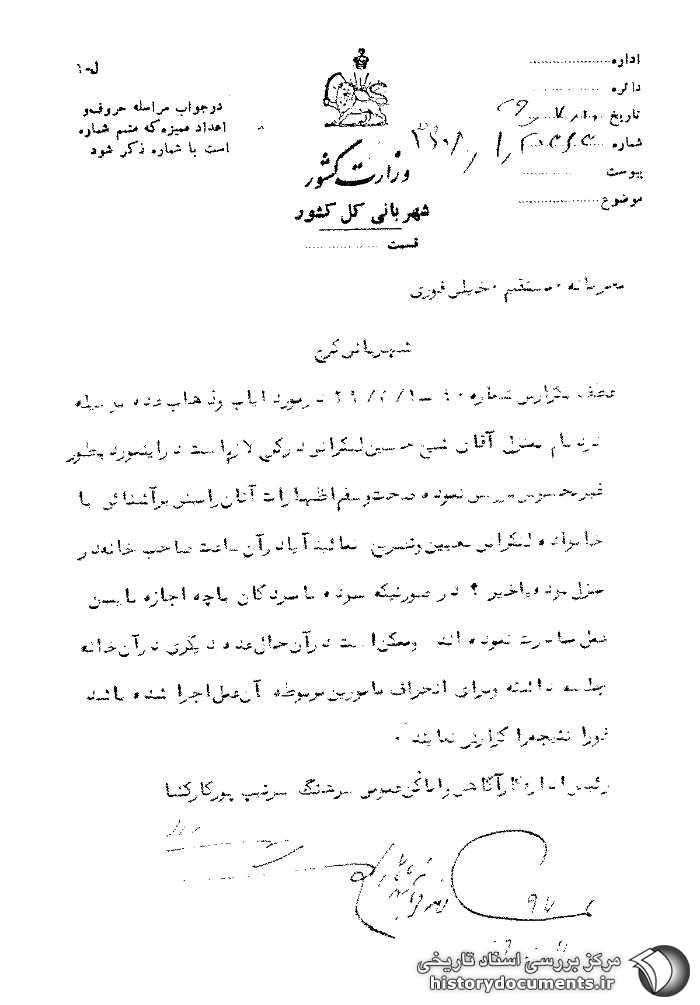 اداره
دائره
تاریخ
شماره
پیوست
موضوع
ل-۱۰
در جواب مراسله حروف و
اعداد ممیزه که متمم شماره
است با شماره ذکر شود
وزارت کشور
شهربانی کل کشور
قسمت
محرمانه - مستقیم - خیلی فوری
شهربانی کرج
عطف بگزارش شماره در مورد ایاب و ذهاب عده بوسیله
بنام منزل آقای شیخ حسین لنکرانی در کرج لازم است در اینمورد بطور
غیر محسوس بررسی نموده صحت و سقم اظهارات آنان را مبنی بر آشنائی با
خانواده لنکرانی تعیین و تصریح نمائید آیا در آن ساعت صاحب خانه در
منزل بوده یا خیر ؟ در صورتیکه نبوده نامبردگان باچه اجازه باین
عمل مبادرت نموده اند و ممکن است در آن حال عده دیگری در آن خانه
جلسه داشته و برای انحراف مامورین مربوطه آن عمل اجرا شده باشد
فورا نتیجه را گزارش نمایند .
رئیس اداره کارآگاهی و اماکن عمومی سرهنگ سرتیپ پور کارکشا
مرکز بررسی اسناد تاریخی
historydocuments.ir